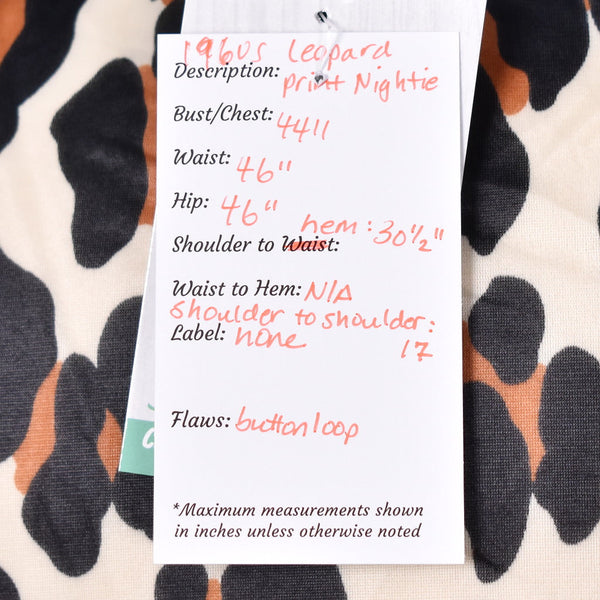 1960s Leopard
Description: print Nightie
Bust/Chest: 44"
Waist: 46"
Hip: 46"
hem: 30½"
Shoulder to Waist:
Waist to Hem: N/A
Shoulder to shoulder:
Label: none 17
Flaws: button loop
*Maximum measurements shown
in inches unless otherwise noted